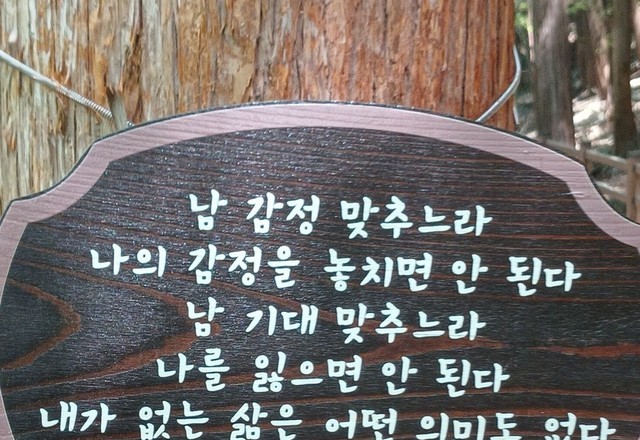 남 감정 맞추느라
나의 감정을 놓치면 안 된다
남 기대 맞추느라
나를 잃으면 안 된다
내가 없는 삶은 어떤 의미도 없다